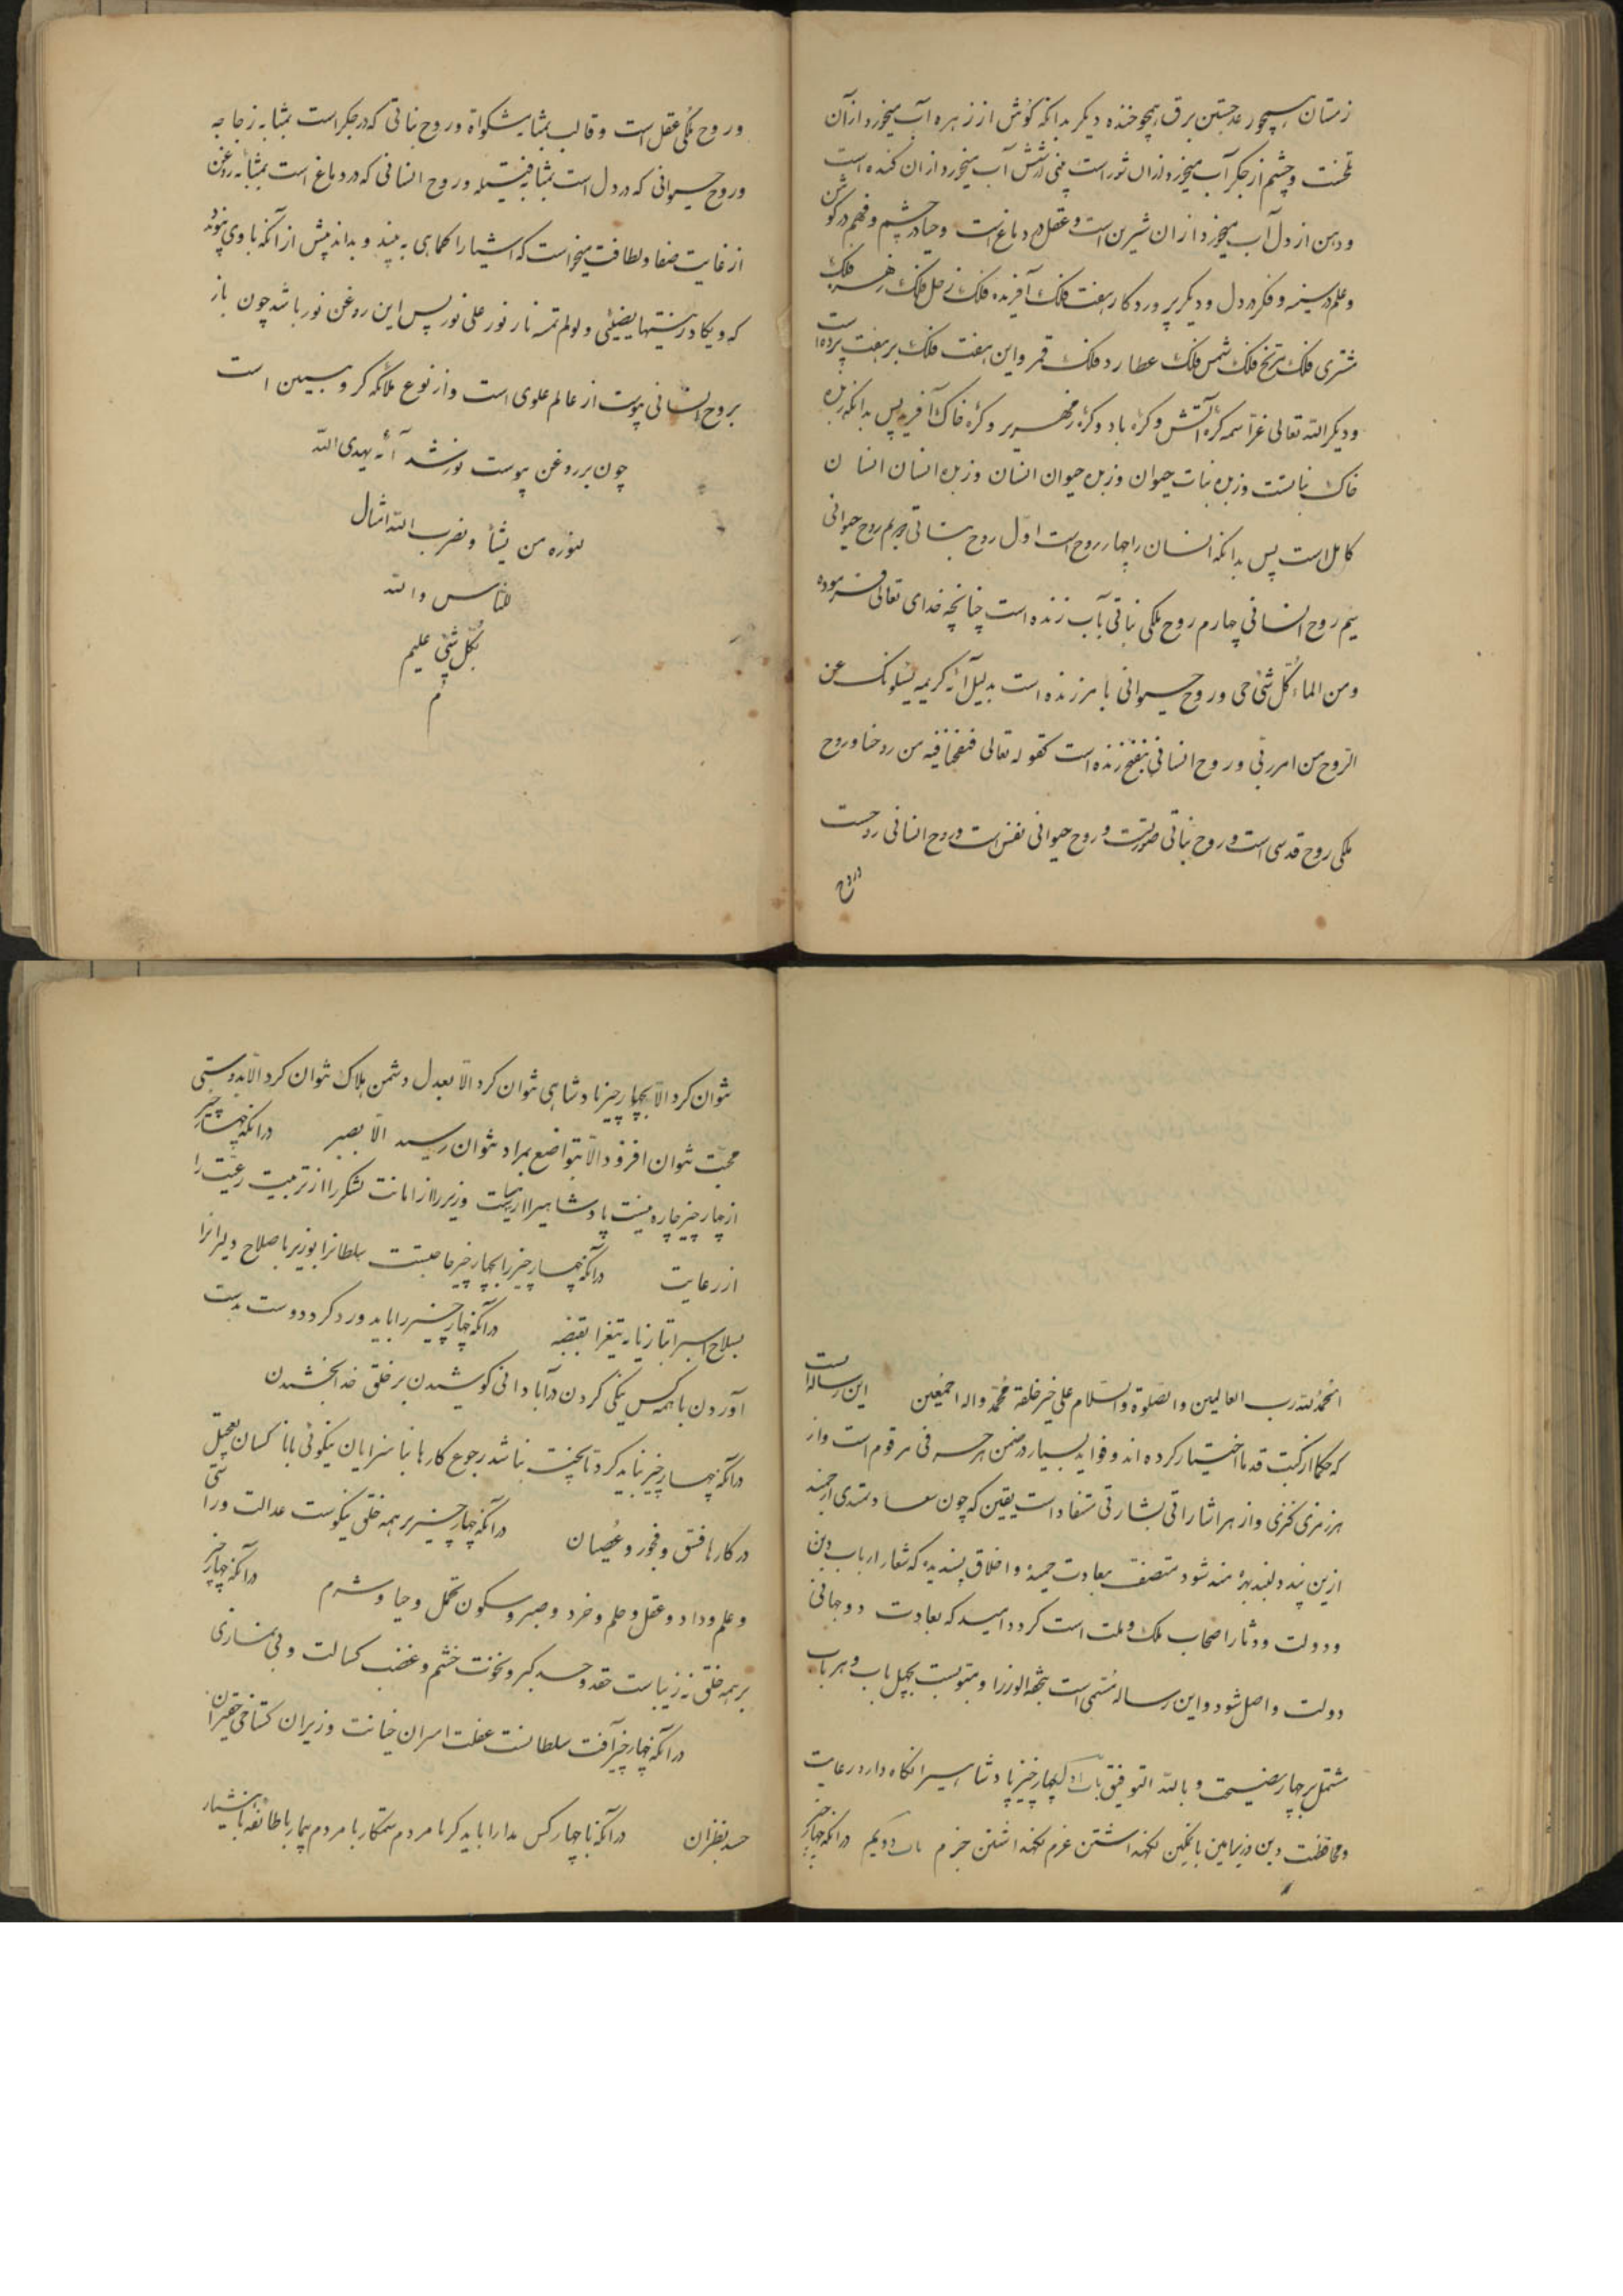 زمستان همچو رعد جستن برق همچو خنده دیگر بدانکه گوش از زهره آب میخورد از آن
تلخست و چشم از جگر آب میخورد از ان شور است بینی از شش آب میخورد از ان کنده است
و دهن از دل آب میخورد از ان شیرین است و عقل در دماغ است و حیا در چشم و فهم در گوش
و علم در سینه و فکر در دل و دیگر پروردگار هفت فلک آفریده فلک زحل فلک زهره فلک
مشتری فلک مریخ فلک شمس فلک عطارد فلک قمر و این هفت فلک بر هفت پرده است
و دیگر الله تعالی عز اسمه کرهٔ آتش و کرهٔ باد و کرهٔ زمهریر و کرهٔ خاک آفرید پس بدانکه زبدهٔ
خاک نباتست و زبدهٔ نبات حیوان و زبدهٔ حیوان انسان و زبدهٔ انسان انسان
کامل است پس بدانکه انسان را چهار روح است اول روح نباتی دویم روح حیوانی
سیم روح انسانی چهارم روح ملکی نباتی بآب زنده است چنانچه خدای تعالی فرموده
و من الماء کل شیٔ حی و روح حیوانی بامر زنده است بدلیل آیهٔ کریمه یسلونک عن
الروح من امر ربی و روح انسانی بنفخ زنده است کقوله تعالی فنفخنا فیه من روحنا و روح
ملکی روح قدسی است و روح نباتی صورتست و روح حیوانی نفس است و روح انسانی روحست
و روح
و روح ملکی عقل است و قالب بمثابه مشکواة و روح نباتی که در جگر است بمثابه زجاجه
و روح حیوانی که در دل است بمثابه فتیله و روح انسانی که در دماغ است بمثابه روغن
از غایت صفا و لطافت میخواست که اشیا را کماهی به بیند و بداند پیش از آنکه باوی پیوندد
که و یکاد زیتها یضیئی و لو لم تمسه نار نور علی نور پس این روغن نور باشد چون باز
بروح انسانی پیوست از عالم علوی است و از نوع ملائکه کروبیین است
چون بر روغن پیوست نور شد آیه یهدی الله
لنوره من یشأ و یضرب الله امثال
للناس و الله
بکل شیٔ علیم
تم
الحمد لله رب العالمین و الصلوة و السلام علی خیر خلقه محمد و اله اجمعین این رساله است
که حکما از کتب قدما اختیار کرده اند و فواید بسیار در ضمن هر حرفی مرقوم است و از
هر رمزی کنزی و از هر اشاراتی بشارتی مستفاد است یقین که چون سعادتمندی ارجمند
ازین پند دلبند بهره مند شود متصف بعادت حمیده و اخلاق پسندیده که شعار ارباب دین
و دولت و دثار اصحاب ملک و ملت است کردد امید که بعادت دو جهانی
دولت واصل شود و این رساله مسمی است بتحفه الوزرا و مبتوبست بچهل باب و هر باب
مشتمل بر چهار نصیحت و بالله التوفیق باب اول چهار چیز پادشاهیرا نکاه دارد رعایت
و محافظت دین وزیر امین با تمکین نکهداشتن عزم نکهداشتن حزم باب دویم درانکه چهار چیز
نتوان کرد الا بچهار چیز پادشاهی نتوان کرد الا بعدل دشمن هلاک نتوان کرد الا بدوستی
محبت نتوان افزود الا بتواضع بمراد نتوان رسید الا بصبر درانکه چهار چیز
از چهار چیز چاره نیست پادشاهیرا از سیاست وزیر را از امانت لشکر را از تربیت رعیت را
از رعایت درآنکه چهار چیز را بچهار چیز حاجتست سلطانرا بوزیر باصلاح دلیرانرا
بسلاح اسبرا بتازیانه تیغرا بقبضه درآنکه چهار چیز را باید ورد کرد دوست بدست
آوردن با همه کس نیکی کردن در آبادانی کوشیدن بر خلق خدا بخشیدن
درآنکه چهار چیز نباید کرد تا پخت نباشد رجوع کارها بناسزایان نیکوئی با ناکسان تعجیل
در کارها فسق و فجور و عصیان درآنکه چهار چیز بر همه خلق نیکوست عدالت و راستی
و علم و داد و عقل و حلم و خرد و صبر و سکون تحمل و حیا و شرم درآنکه چهار چیز
بر همه خلق نه زیباست حقد و حسد کبر و نخوت خشم و غضب کسالت و بی نمازی
درآنکه چهار چیز آفت سلطانست غفلت امیران خیانت وزیران کستاخی حقیران
حسد نظران درآنکه با چهار کس مدارا باید کرد با مردم ستمکار با مردم بیمار با طائفه